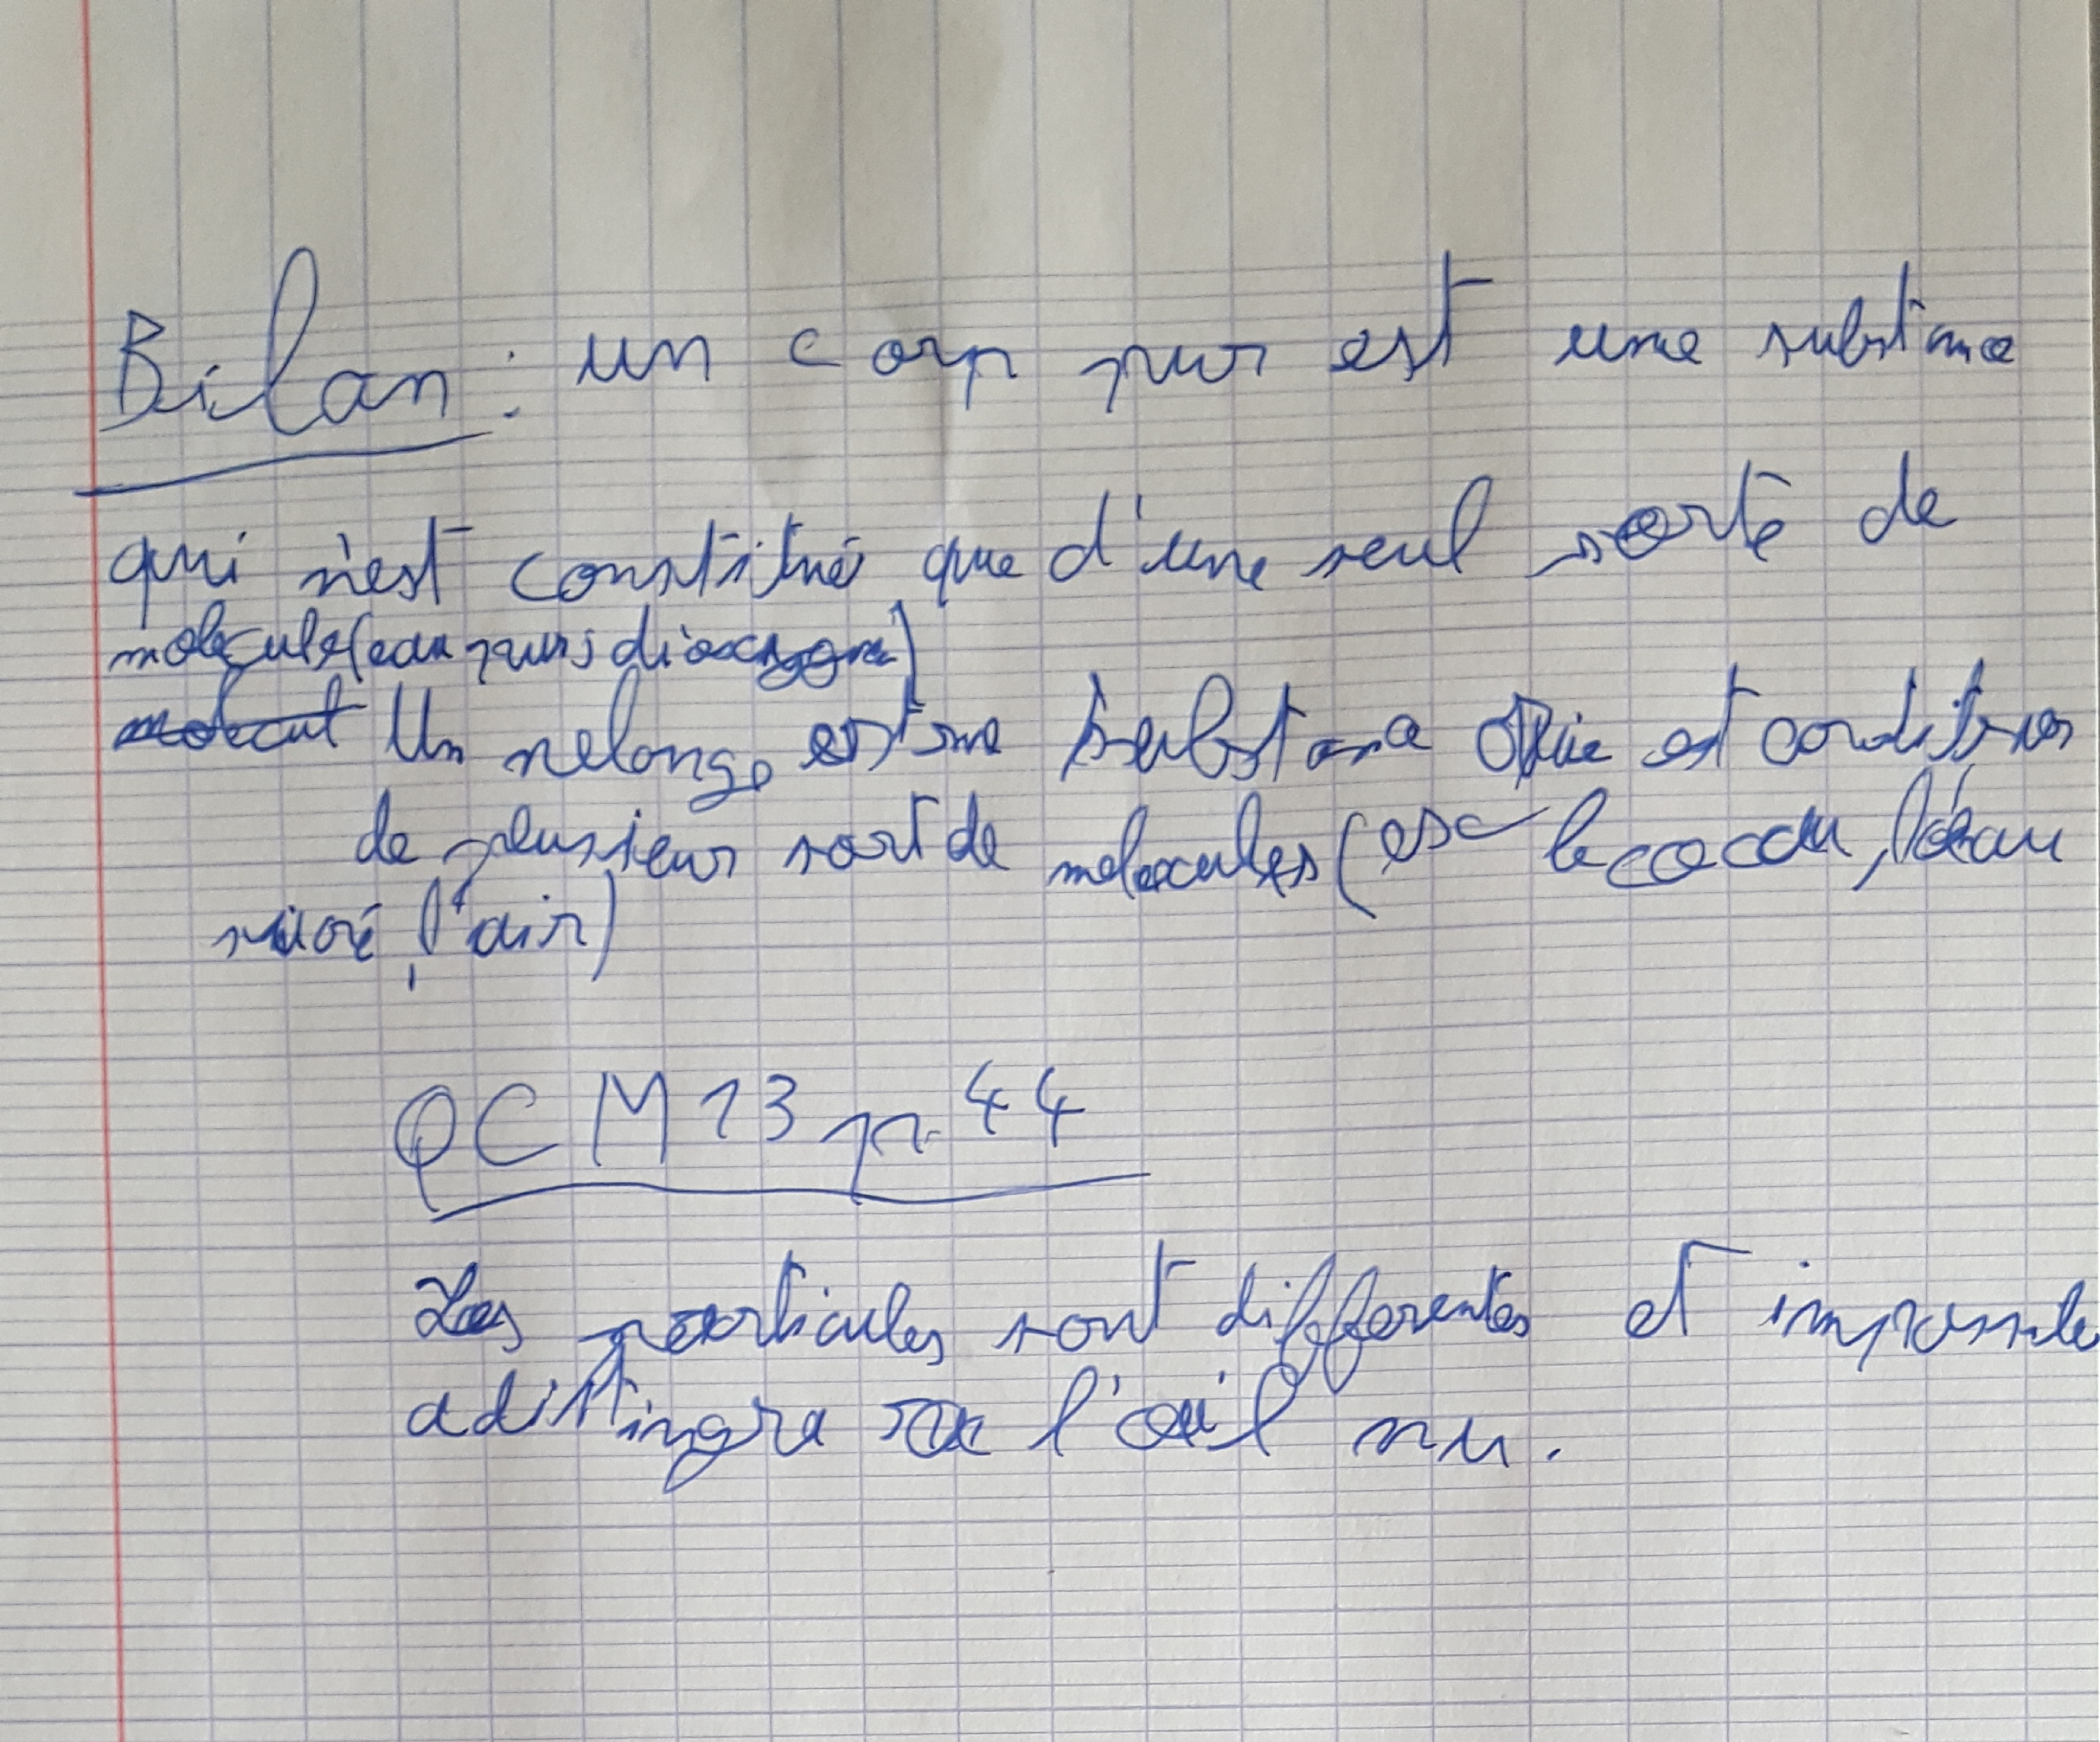 Bilan : un corp pur est une substance
qui n'est constitué que d'une seul sorte de
molécule (eau pur; dioxygne)
molecul Un melange est une substance qui est constitués
de plusieur sort de molecules (ex le cocau, l'eau
sucré, l'air)
QCM 13 p. 44
Les particules sont differentes et impossible
a distingra a l'œil nu.